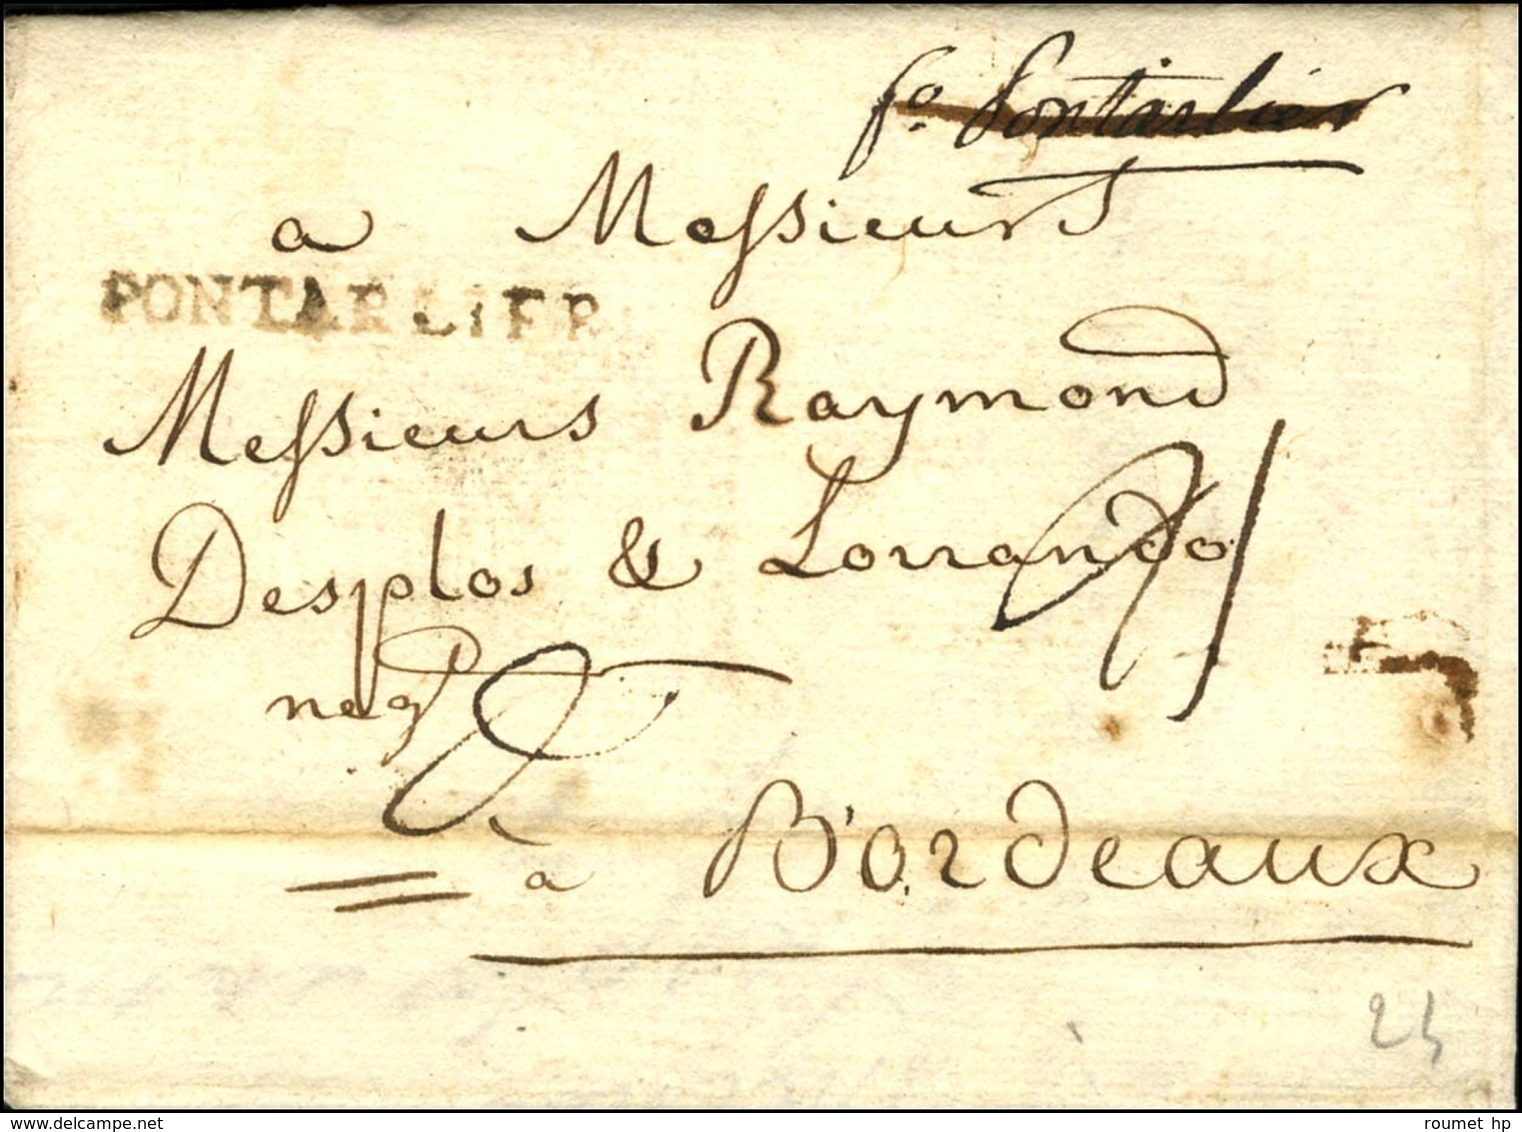 fo. Pontarlier
a Messieurs
PONTARLIER
Messieurs Raymond
Desplos & Lorrando
negt
à Bordeaux
24
delcampe.net
roumet hp